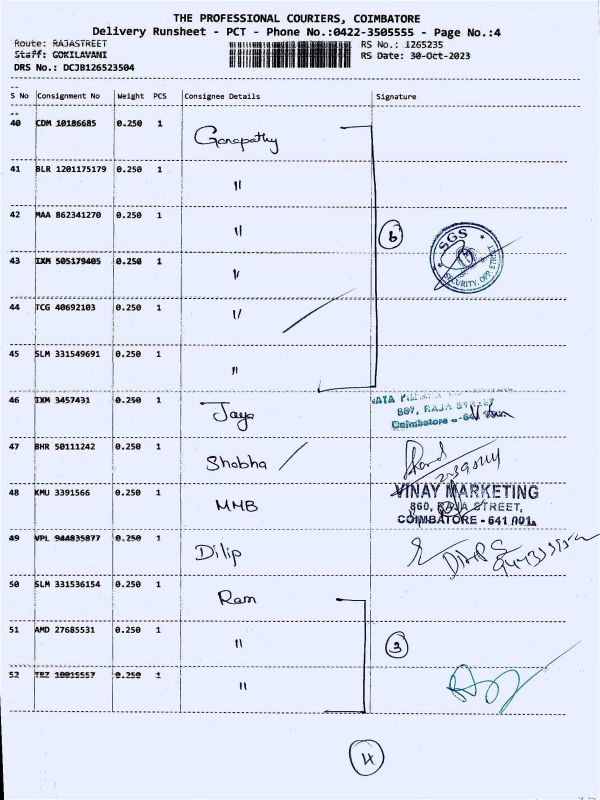 THE PROFESSIONAL COURIERS, COIMBATORE
Delivery Runsheet - PCT - Phone No.:0422-3505555 - Page No.:4
Route: RAJASTREET RS No.: 1265235
Staff: GOKILAVANI RS Date: 30-Oct-2023
DRS No.: DCJB126523504
S No Consignment No Weight PCS Consignee Details Signature
40 CDM 10186685 0.250 1 Ganapathy
41 BLR 1201175179 0.250 1 "
42 MAA 862341270 0.250 1 "
6
SGS
SECURITY, OPP. STREET
43 IXM 505179405 0.250 1 "
44 TCG 40692103 0.250 1 "
45 SLM 331549691 0.250 1 "
46 IXM 3457431 0.250 1 Jaya
807, RAJA STREET
Coimbatore - 64
47 BHR 50111242 0.250 1 Shobha
48 KMU 3391566 0.250 1 MMB
VINAY MARKETING
860, RAJA STREET,
COIMBATORE - 641 001.
49 VPL 944835877 0.250 1 Dilip
DILIP
50 SLM 331536154 0.250 1 Ram
51 AMD 27685531 0.250 1 "
3
52 TRZ 10015557 0.250 1 "
4